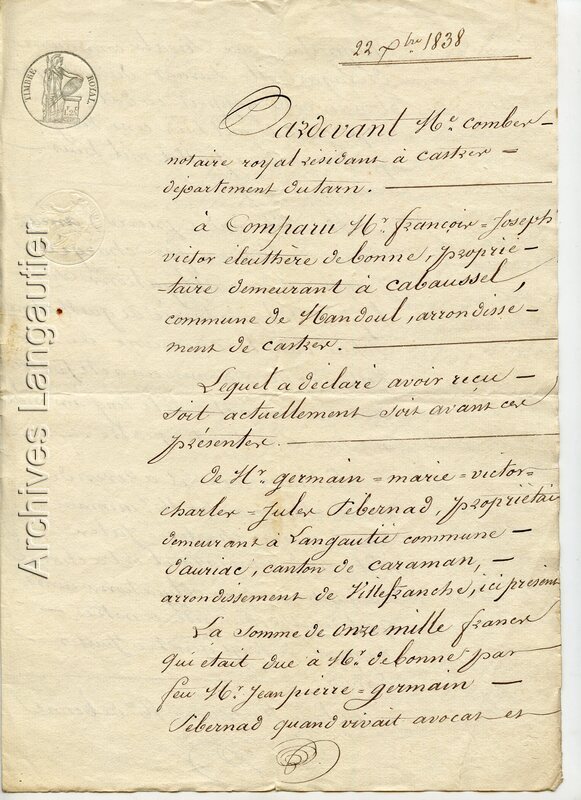 22 Xbre 1838
TIMBRE ROYAL
Pardevant Me. combes
notaire royal résidant à castres
département du tarn.
à Comparu Mr. françois=Joseph
victor éleuthère de bonne, proprié-
-taire demeurant à cabaussel,
commune de Nandoul, arrondisse-
ment de castres.
Lequel a déclaré avoir reçu
soit actuellement soit avant ces
présentes.
de Mr. germain=marie=victor=
charles=Jules Sébernad, propriétai
demeurant à Langautié commune
d'auriac, canton de caraman,
arrondissement de Villefranche, ici présent
La somme de onze mille francs
qui était due à Mr. de bonne par
feu Mr. Jean pierre=germain
Sébernad quand vivait avocat et
Archives Langautier